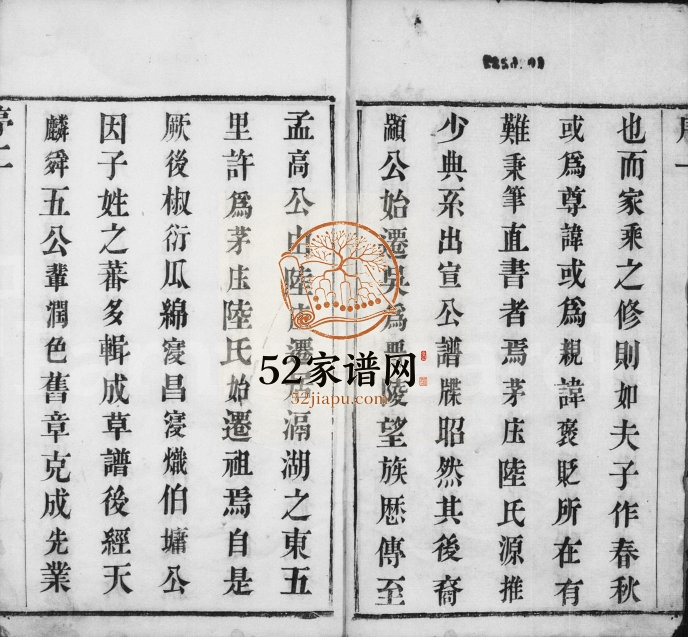 也而家乘之修則如夫子作春秋
或爲尊諱或爲親諱褒貶所在有
難秉筆直書者焉茅庄陸氏源推
少典系出宣公譜牒昭然其後裔
顓公始遷吳爲 陵望族厯傳至
序二
孟高公由陸庄遷居滆湖之東五
里許爲茅庄陸氏始遷祖焉自是
厥後椒衍瓜綿寖昌寖熾伯墉公
因子姓之蕃多輯成草譜後經天
麟舜五公輩潤色舊章克成先業
52家谱网
52jiapu.com